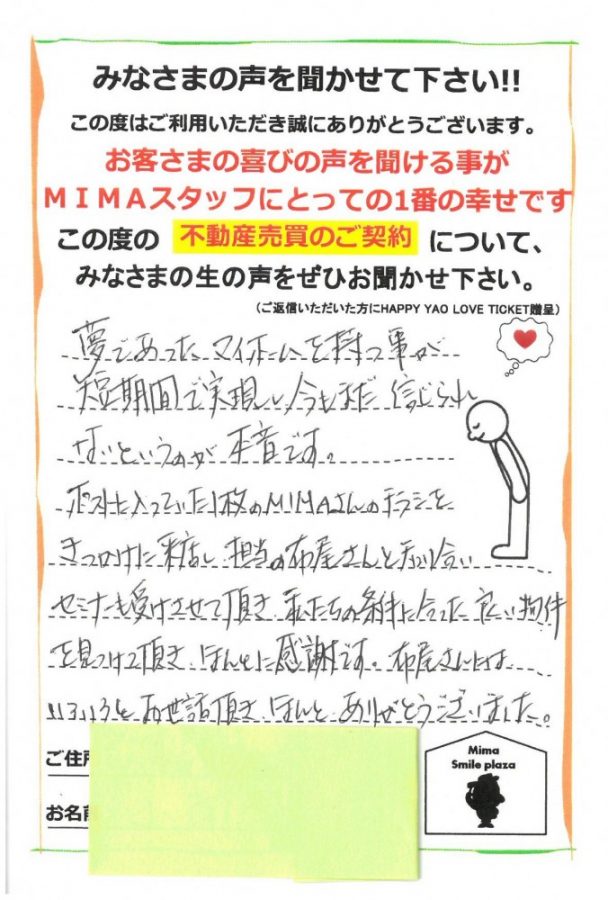 みなさまの声を聞かせて下さい!!
この度はご利用いただき誠にありがとうございます。
お客さまの喜びの声を聞ける事が
MIMAスタッフにとっての1番の幸せです
この度の 不動産売買のご契約 について、
みなさまの生の声をぜひお聞かせ下さい。
(ご返信いただいた方にHAPPY YAO LOVE TICKET贈呈)
夢であった マイホームを持つ事が
短期間で実現し 今もまだ 信じられ
ないというのが 本音です。
ポストに入っていた1枚のMIMAさんのチラシを
きっかけに来店し 担当の布屋さんと知り合い
セミナーも受けさせて頂き 私たちの条件に合った 良い物件
を見つけて頂き ほんとに感謝です。布屋さんには
いろいろと お世話頂き ほんと ありがとうございました。
ご住所
お名前
Mima
Smile plaza